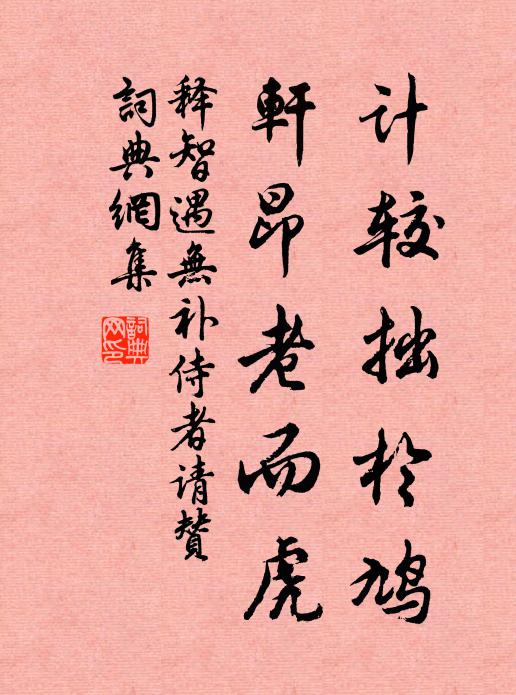 计较拙於鸠
軒昂老而虎
释智遇無补侍者请赞
詞典網集
詞典网印